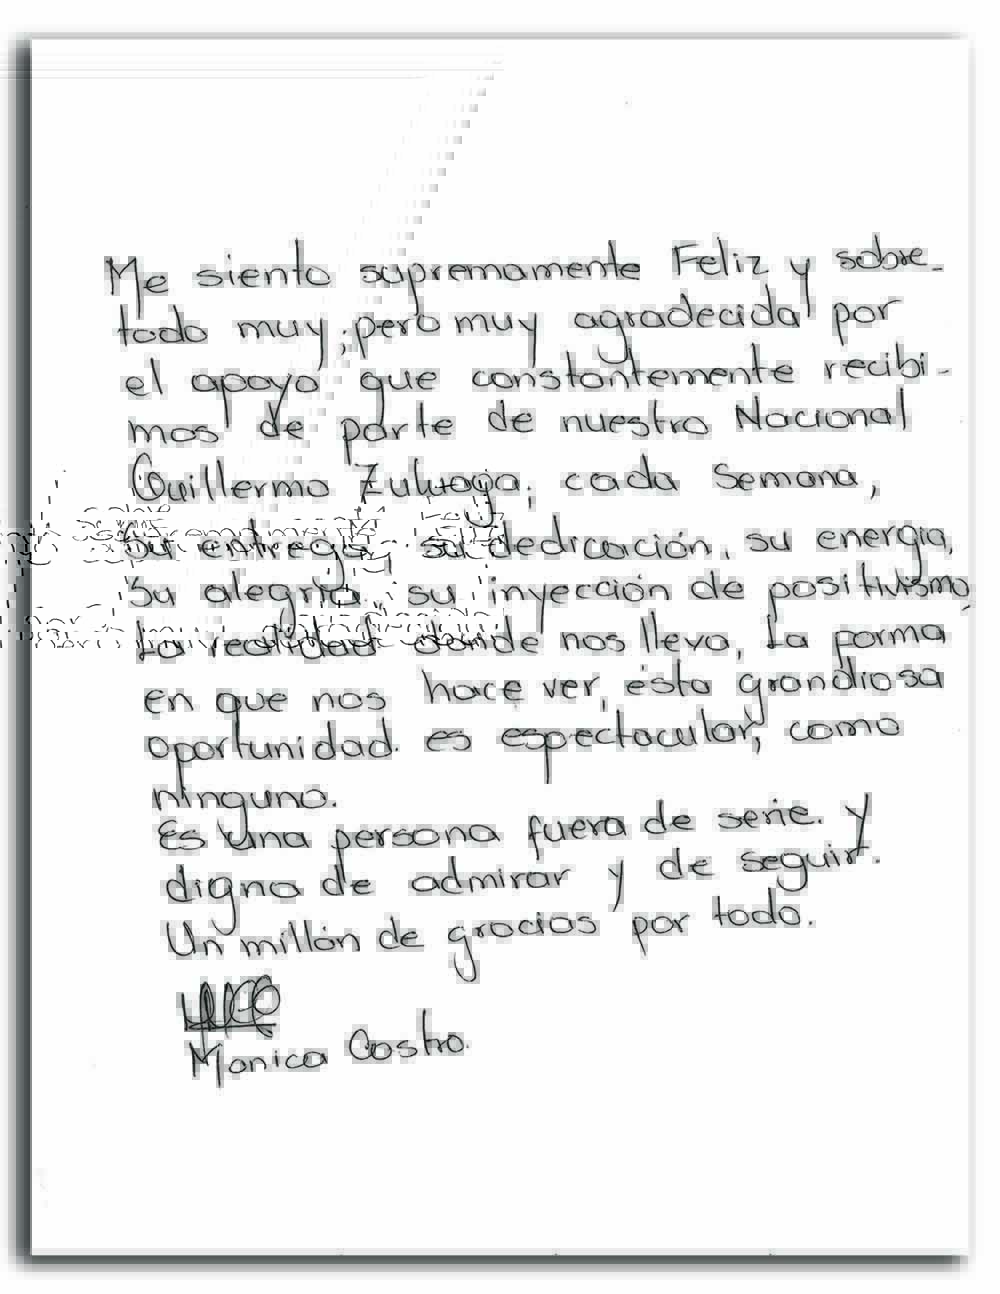 Me siento supremamente Feliz y sobre-
todo muy, pero muy agradecida por
el apoyo que constantemente recibi-
mos de parte de nuestro Nacional
Guillermo Zuluaga, cada semana,
su entrega, su dedicación, su energia,
su alegria, su inyección de positivismo,
La realidad donde nos lleva, La forma
en que nos hace ver, esta grandiosa
oportunidad. es espectacular, como
ninguno.
Es una persona fuera de serie. y
digna de admirar y de seguir.
Un millón de gracias por todo.
Monica Castro.